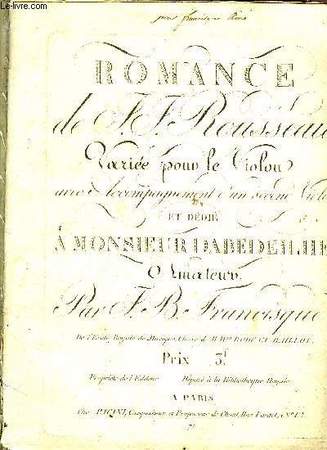 www.le-livre.com
ROMANCE
de J. J. Rousseau
Variée pour le Violon
avec accompagnement d'un second Violon
ET DÉDIÉ
À MONSIEUR DABEDEILHE
Amateur
Par J. B. Francisque
De l'Ecole Royale de Musique, Classe de M. RODE ET BAILLOT.
Prix 3f
Propriété de l'Editeur Déposé à la Bibliothèque Royale
A PARIS
Chez PACINI, Compositeur et Professeur de Chant, Rue Favart, Nº 12